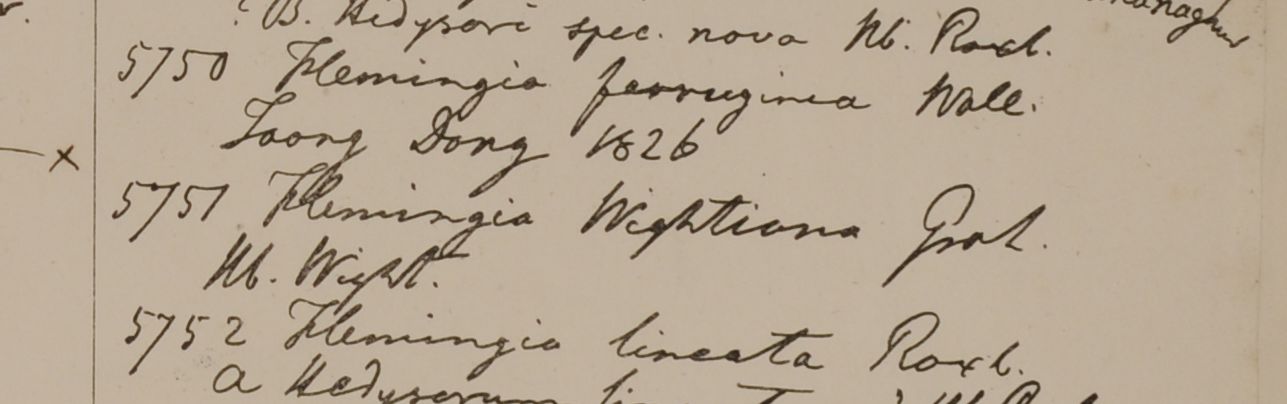 B. Hedysari spec. nova Hb. Roxb.
5750 Flemingia ferruginea Wall.
Toong Dong 1826
x
5751 Flemingia Wightiana Grah.
Hb. Wight.
5752 Flemingia lineata Roxb.
a Hedysarum